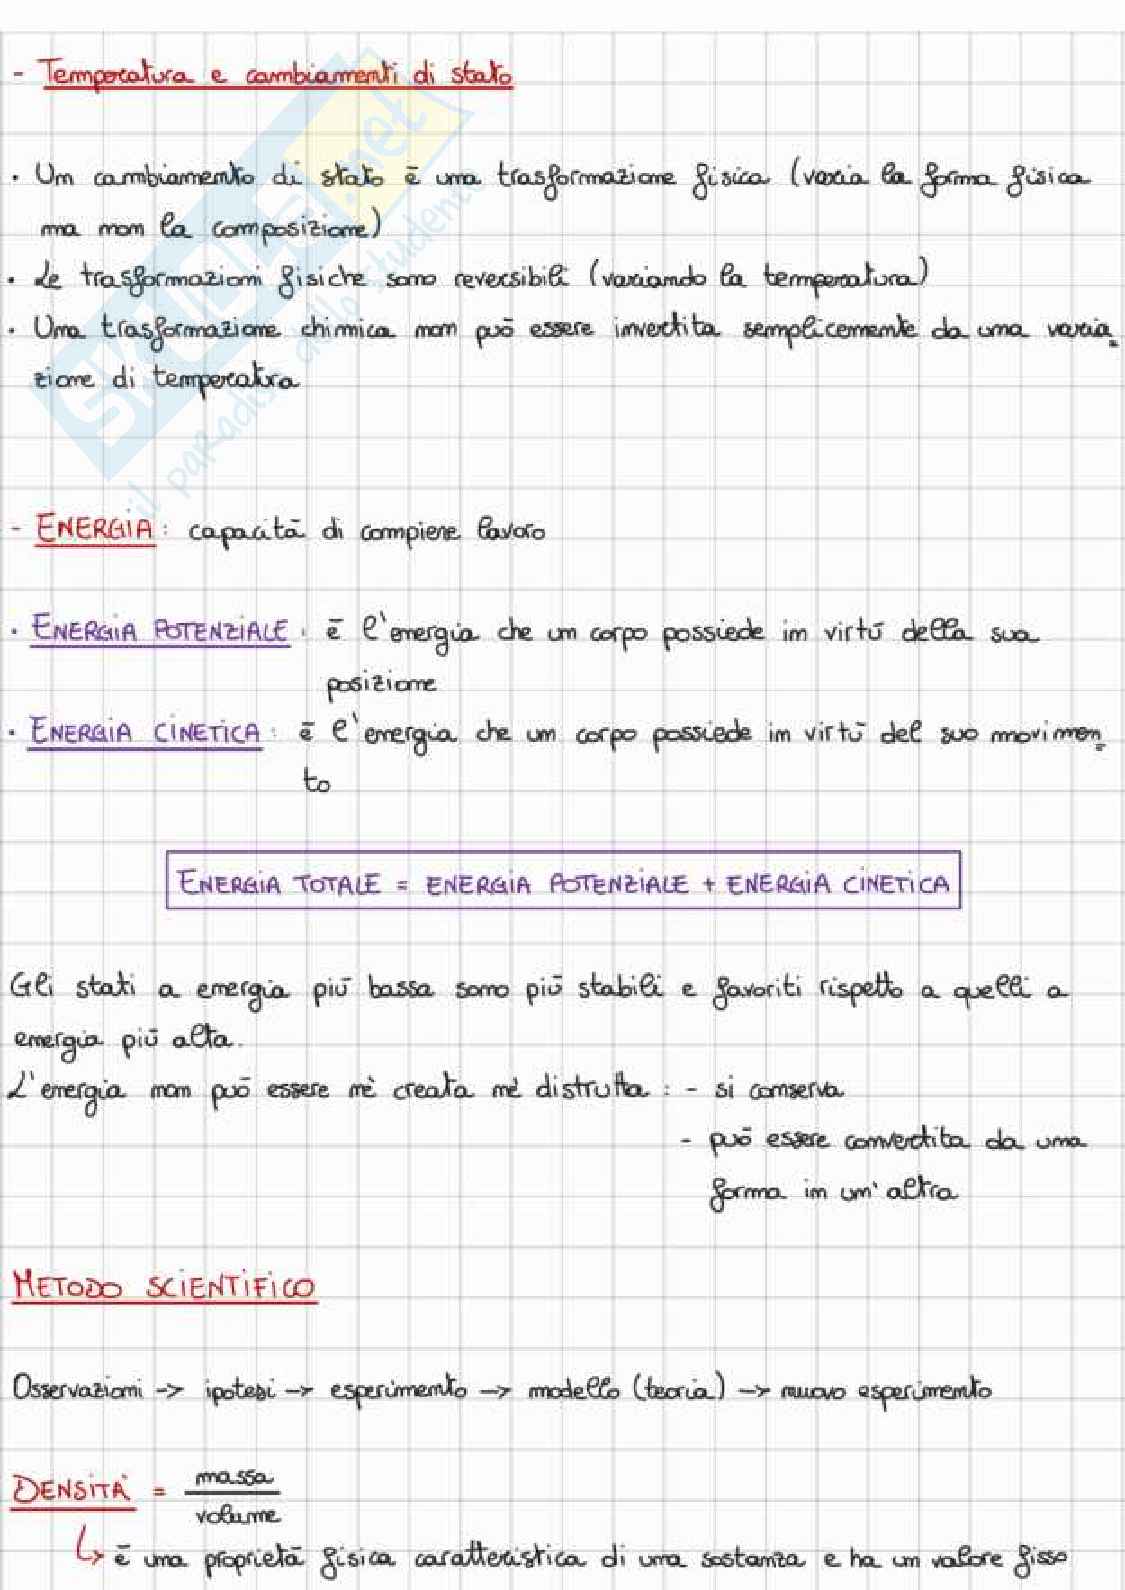 - Temperatura e cambiamenti di stato
• Un cambiamento di stato è una trasformazione fisica (varia la forma fisica
ma non la composizione)
• Le trasformazioni fisiche sono reversibili (variando la temperatura)
• Una trasformazione chimica non può essere invertita semplicemente da una varia
zione di temperatura
- ENERGIA: capacità di compiere lavoro
• ENERGIA POTENZIALE: è l'energia che un corpo possiede in virtù della sua
posizione
• ENERGIA CINETICA: è l'energia che un corpo possiede in virtù del suo movimen
to
ENERGIA TOTALE = ENERGIA POTENZIALE + ENERGIA CINETICA
Gli stati a energia più bassa sono più stabili e favoriti rispetto a quelli a
energia più alta.
L'energia non può essere nè creata nè distrutta: - si conserva
- può essere convertita da una
forma in un'altra
METODO SCIENTIFICO
Osservazioni -> ipotesi -> esperimento -> modello (teoria) -> nuovo esperimento
DENSITÀ = massa
volume
↳ è una proprietà fisica caratteristica di una sostanza e ha un valore fisso
SKUOLA.net
il paradiso dello studente